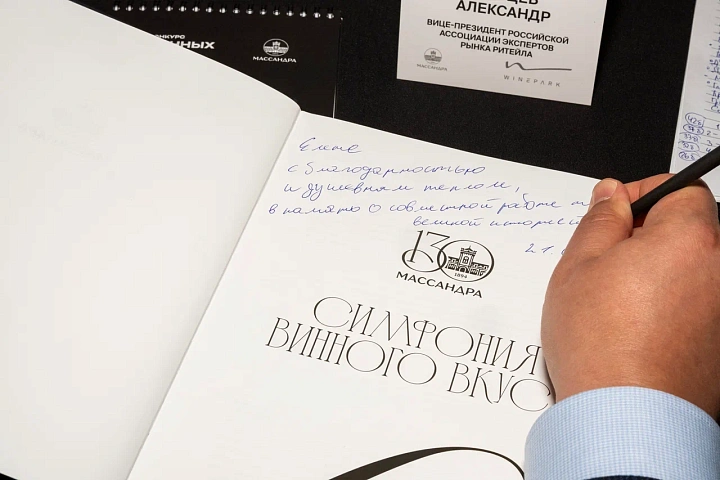 КОНКУРС
МАССАНДРА
АЛЕКСАНДР
ВИЦЕ-ПРЕЗИДЕНТ РОССИЙСКОЙ
АССОЦИАЦИИ ЭКСПЕРТОВ
РЫНКА РИТЕЙЛА
МАССАНДРА
WINEPARK
Елене
с благодарностью
и душевным теплом,
в память о совместной работе
великой историей
21.
130
1894
МАССАНДРА
СИМФОНИЯ
ВИННОГО ВКУС